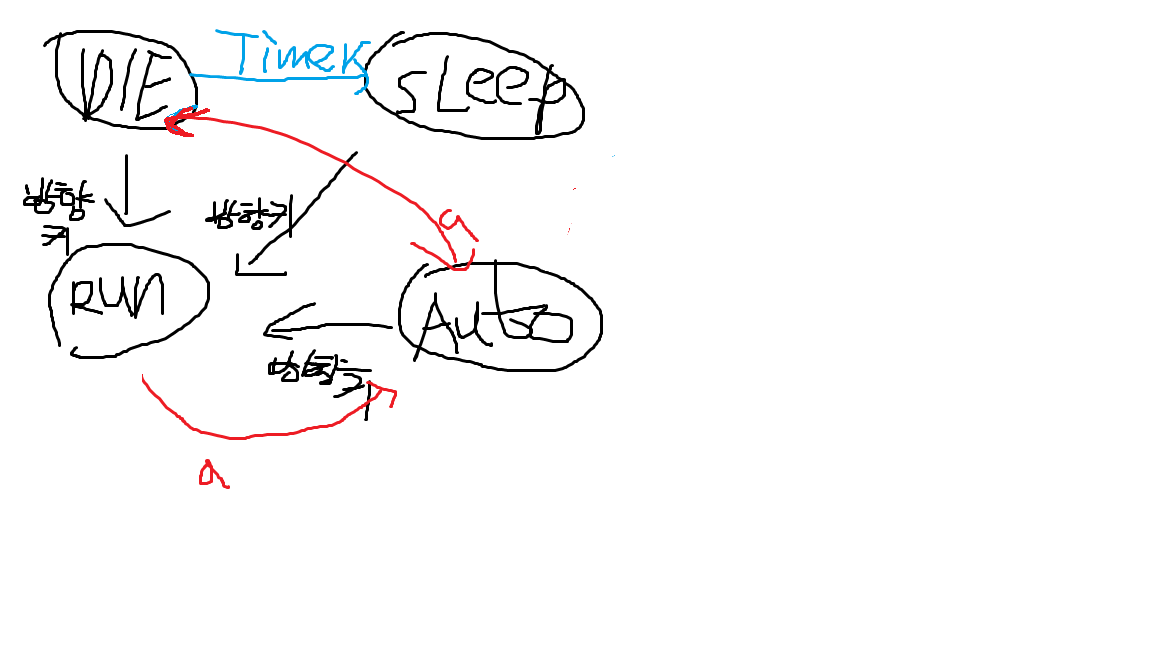 DIE
Timer
sLeep
방향
키
방향키
a
RUN
Auto
방향키
a